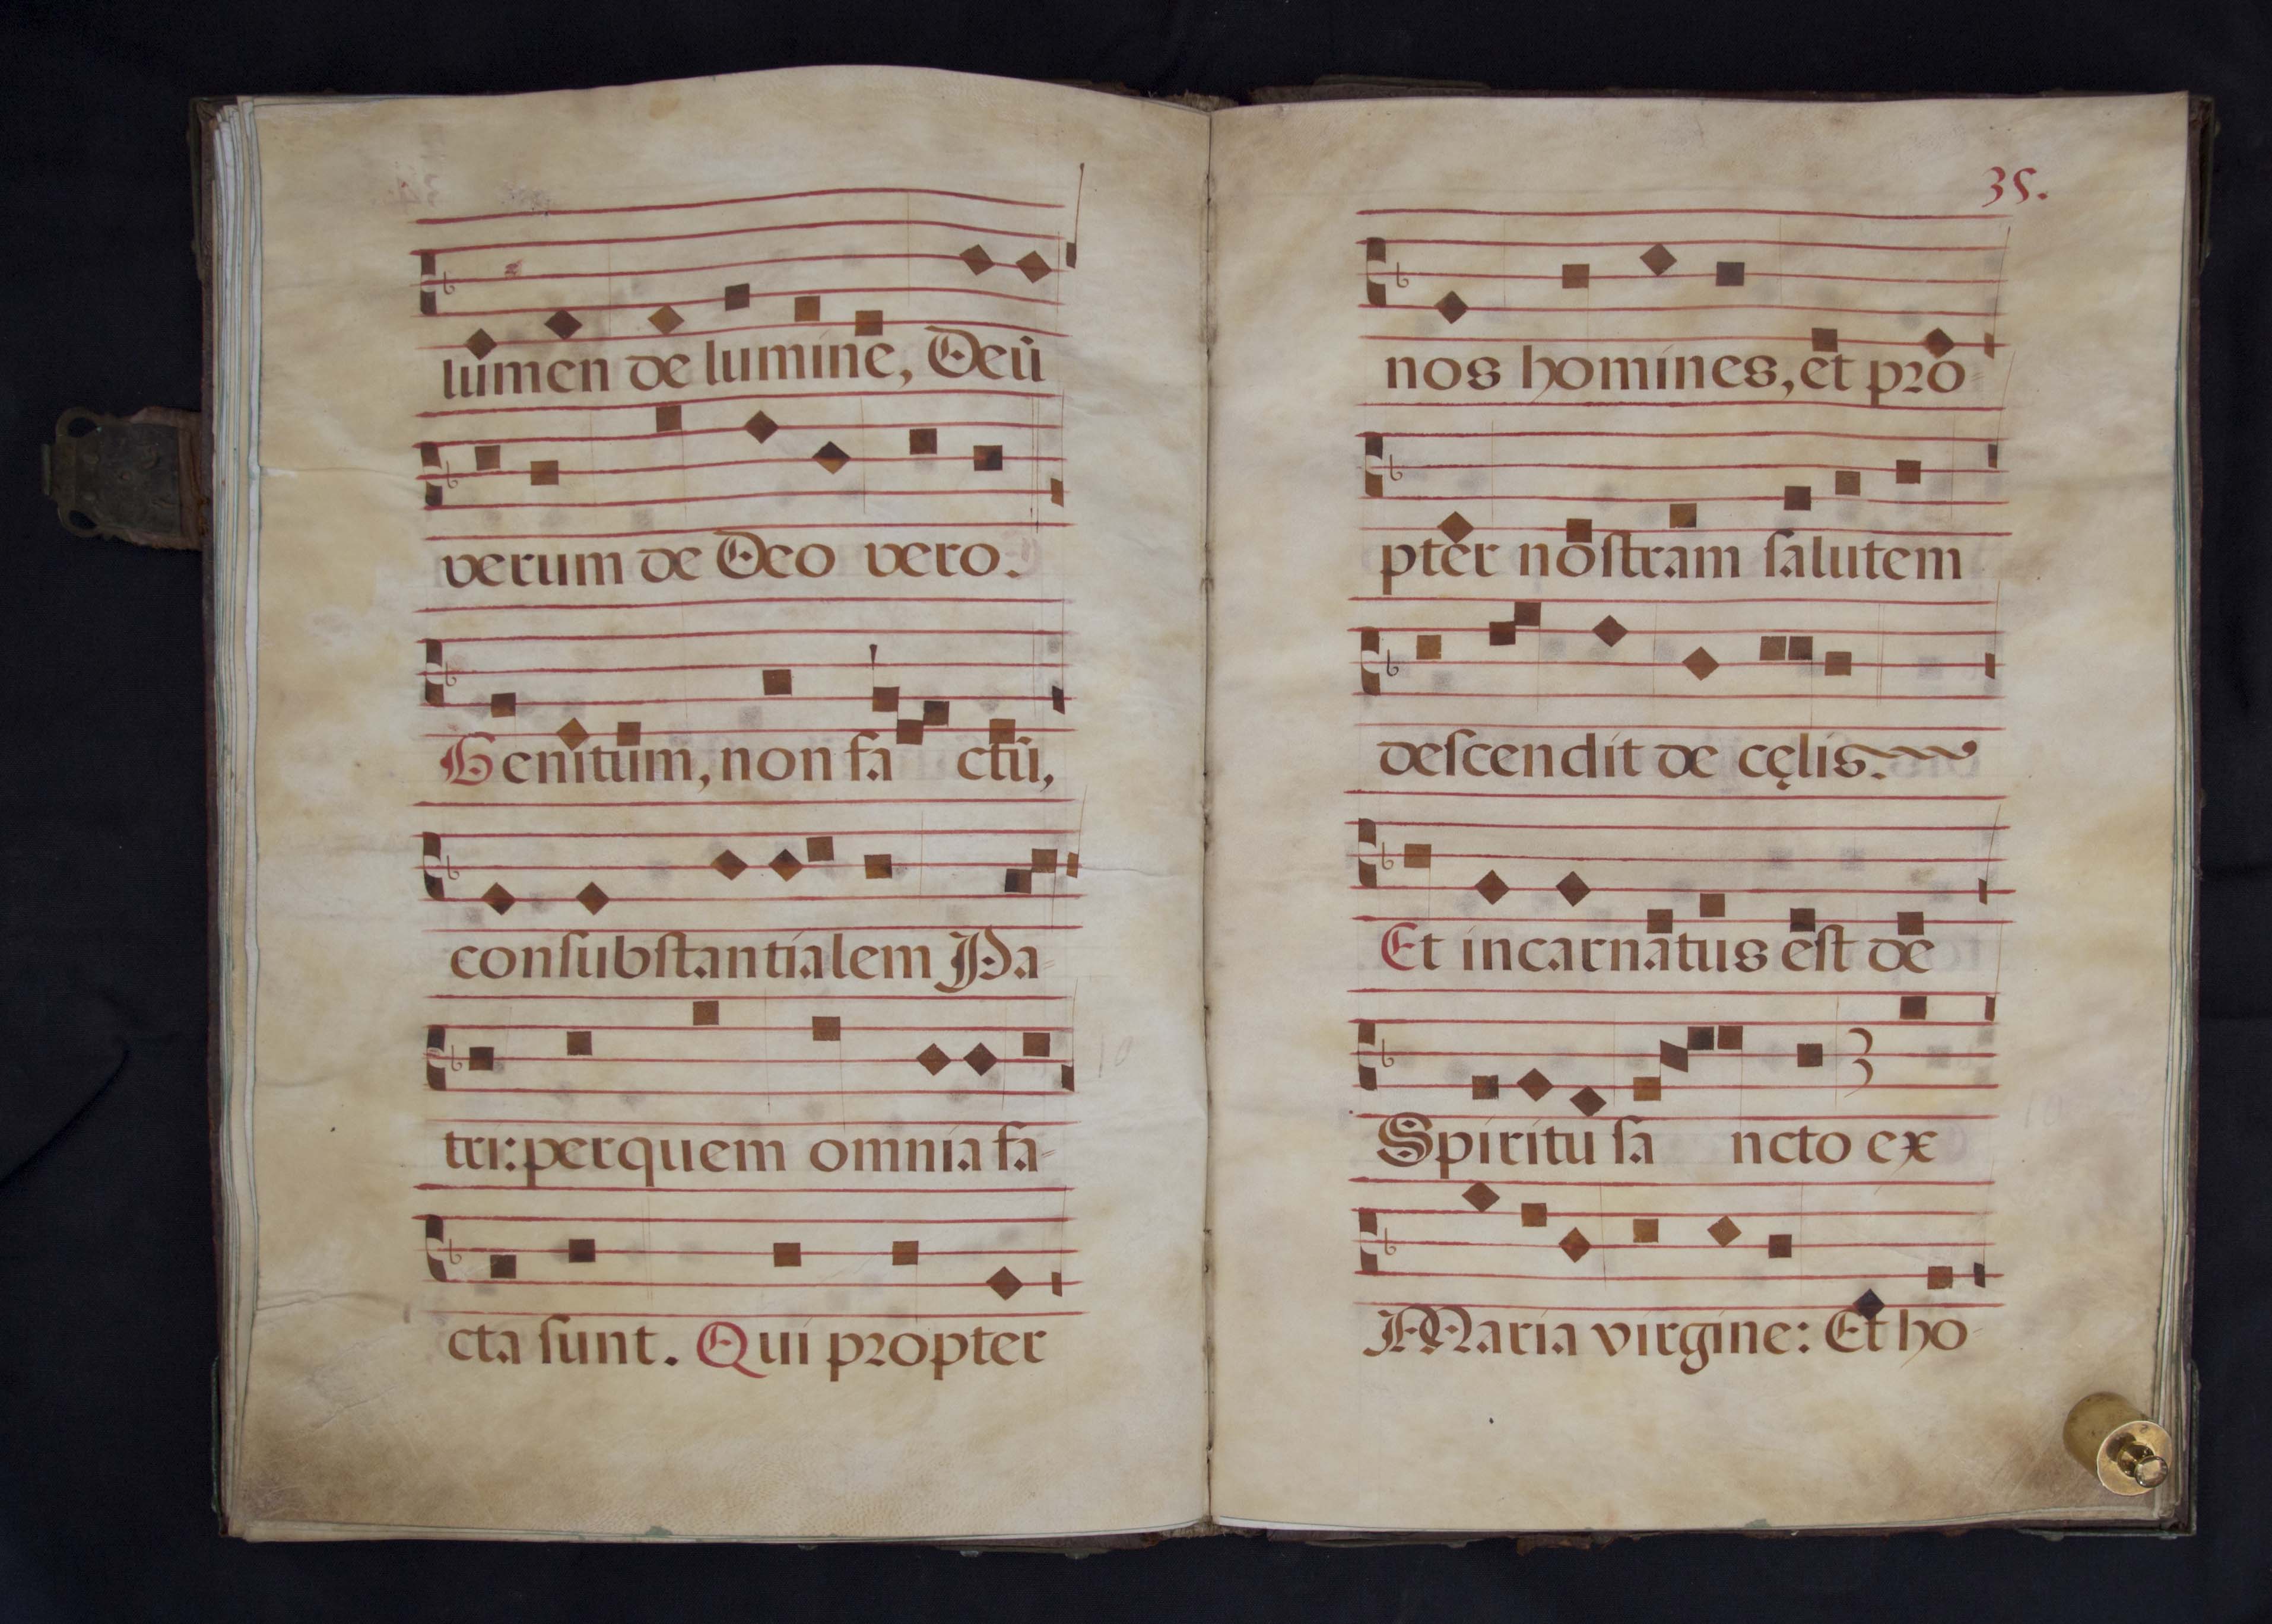 lumen de lumine, Deū
verum de Deo vero.
Genitum, non fa ctū,
consubstantialem Pa-
tri: per quem omnia fa-
cta sunt. Qui propter
35.
nos homines, et pro
pter nostram salutem
descendit de cęlis.
Et incarnatus est de
Spiritu sa ncto ex
Maria virgine: Et ho-